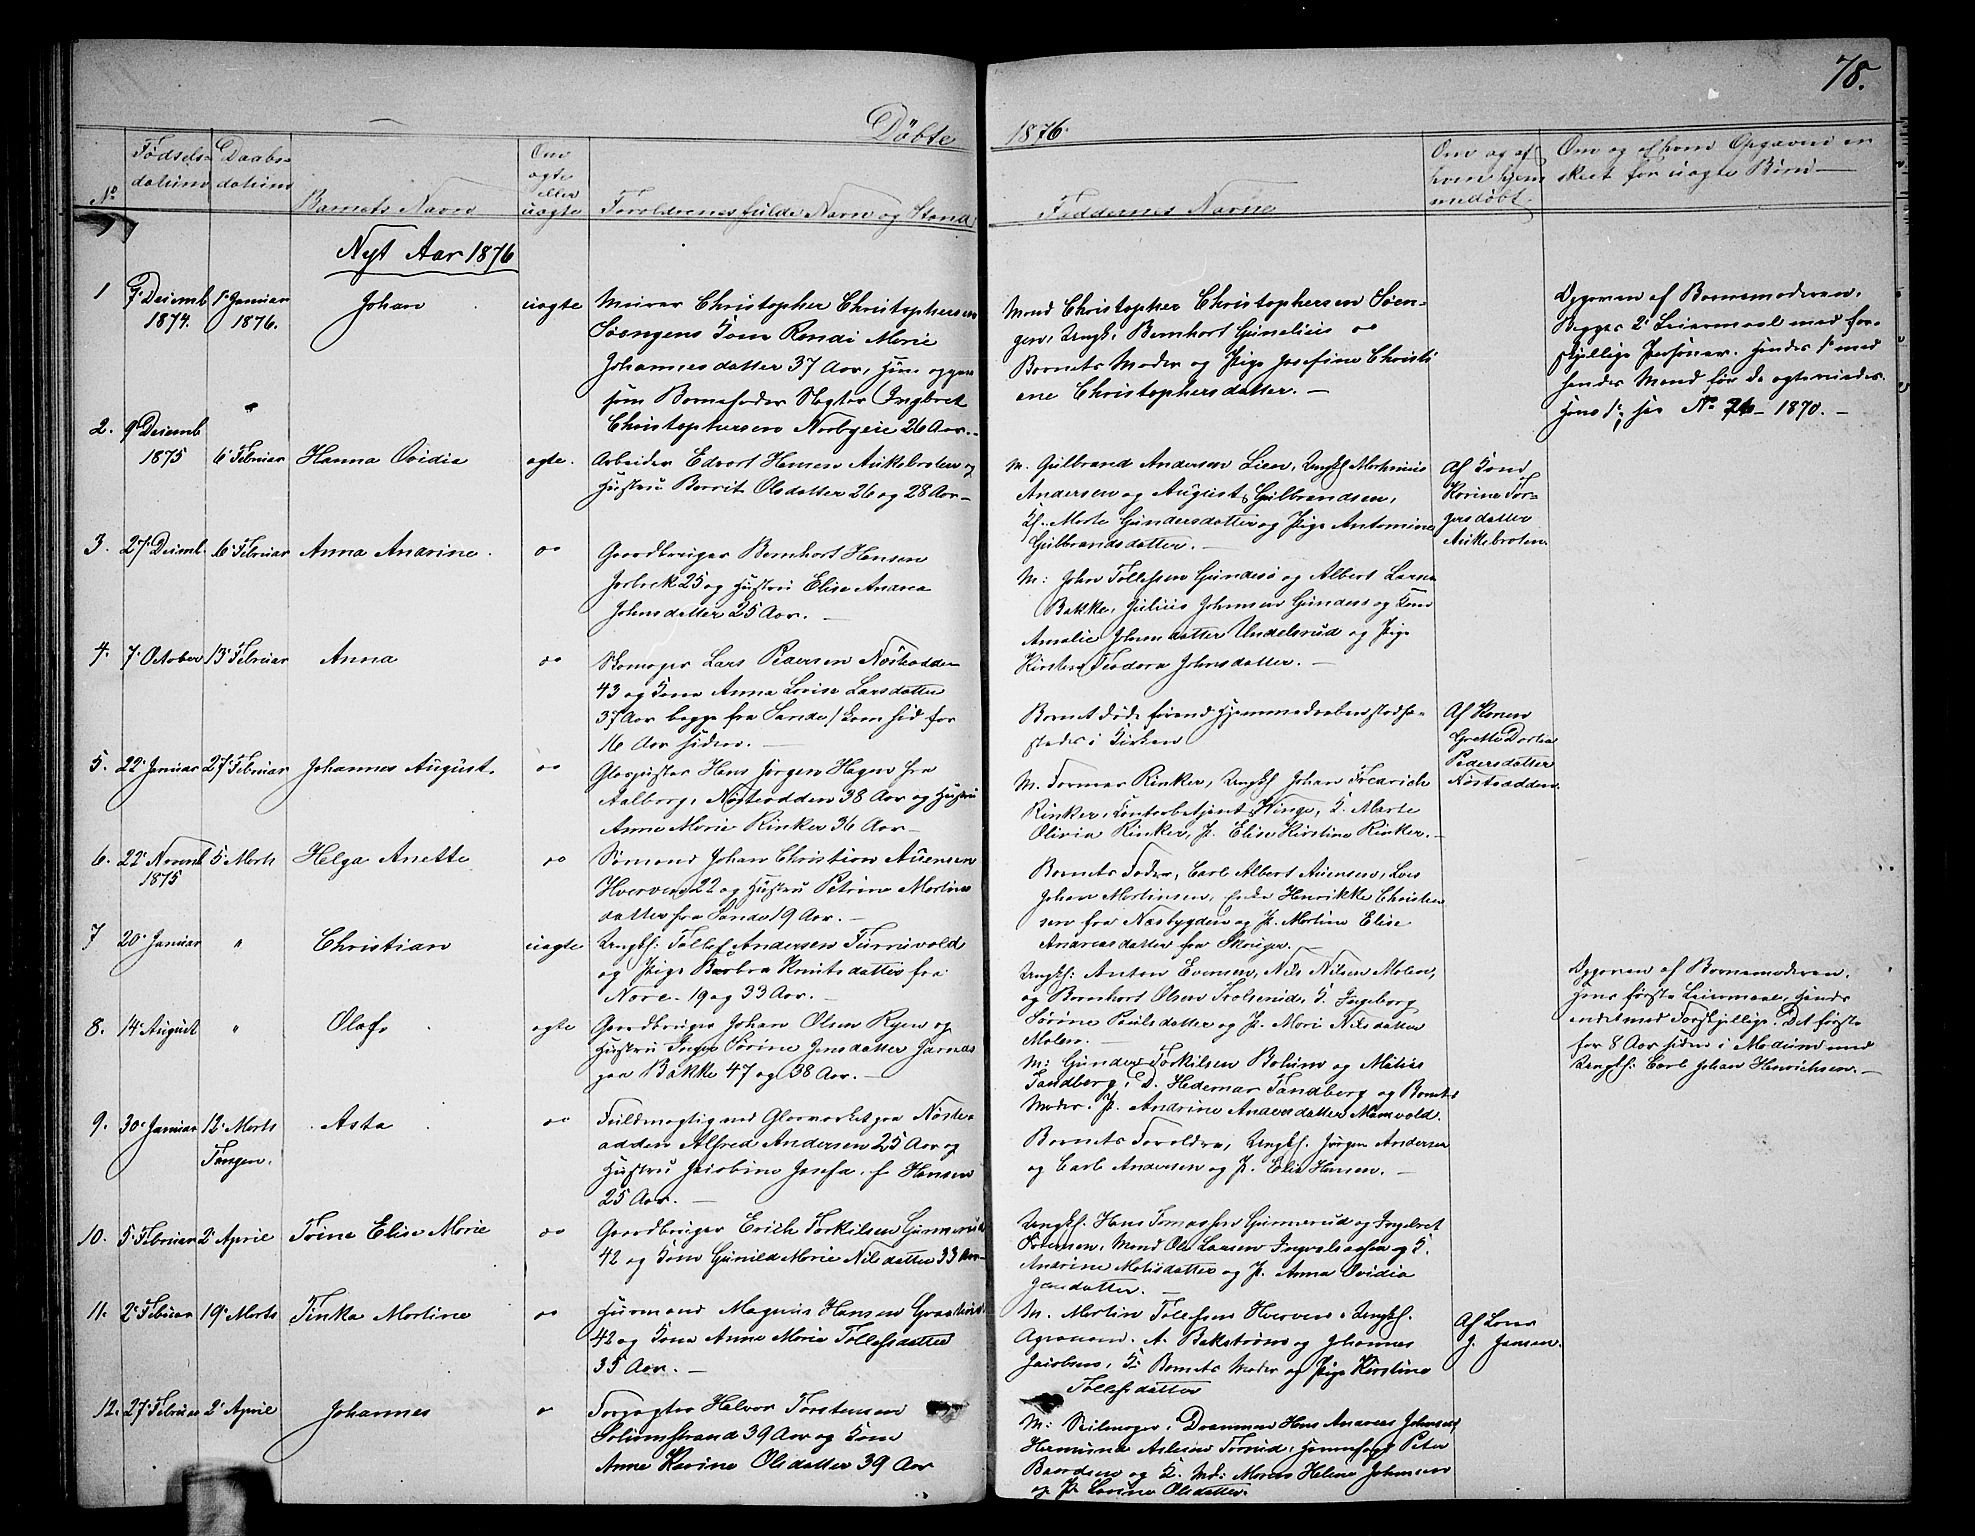 78.
Döbte 1876.
No
Fødsels-
datum
Daabs-
datum
Barnets Navn
Om
ægte
eller
uægte
Forældrenes fulde Navn og Stand
Faddernes Navne
Om og af
hvem hjem
medøbt
Om og af hvem Opgaven er
skeet for uægte Børn
Nyt Aar 1876
1
7 Decemb
1874.
1 Januar
1876.
Johan
uægte
Murer Christopher Christophersen
Søengens Kone Randi Marie
Johannesdatter 37 Aar, hun opgav
som Barnefader Slagter Ingbret
Christophersen Norbyeie 26 Aar.
Mand Christopher Christophersen Søen-
gen, Ungk. Bernhart Gunelius
Barnets Moder og Pige Josefine Christi
ane Christophersdatter. —
Opgaven af Barnemoderen.
Begges 2 Leiermaal med for-
skjellige Personer. Hendes 1 med
hendes Mand før de ægteviedes.
Hans 1; see No 76 - 1870. —
2. 9 Decemb
1875
6 Februar
Hanna Ovidia
ægte.
Arbeider Edvart Hansen Aukebroten og
Hustru Berrit Olsdatter 26 og 28 Aar —
M. Gulbrand Andersen Lien, Ungkf Mathinius
Andersen og August Gulbrandsen,
K. Marte Gundersdatter og Pige Antomine
Gulbrandsdatter. —
Af Kone
Karine Tor-
gersdatter
Aukebroten.
3. 27 Decemb. 6 Februar Anna Andrine.
Gaardbruger Bernhart Hansen
25 og Hustru Elise Andrea
Johnsdatter 25 Aar. —
M: John Tollefsen Gundesø og Albert Larsen
Bakke, Julius Johnsen Gundesø og Kone
Amalie Johnsdatter Undelsrud og Pige
Kirsten Teodora Johnsdatter. —
4. 7 October 13 Februar Anna
Skomager Lars Pedersen Nøsteodden
43 og Kone Anna Lovise Larsdatter
37 Aar begge fra Sande / kom hid for
16 Aar siden. —
Barnet døde førend Hjemmedaaben stadfæ-
stedes i Kirken
Af Konen
Grette Dortea
Pedersdatter
Nøsteodden.
5. 22 Januar 27 Februar Johannes August.
Glaspuster Hans Jørgen Hagen fra
Aalborg, Nøsteodden 38 Aar og Hustru
Anne Marie Rinker 36 Aar —
M. Formar Rinker, Ungkf Johan Fredrich
Rinker, Kontorbetjent Winge, K. Marte
Olivia Rinker, P. Elise Kirstine Rinker. —
6. 22 Novemb 5 Marts
1875
Helga Anette
Sømand Johan Christian Auensen
Hverven 22 og Hustru Petrine Martins
datter fra Sande 19 Aar. —
Barnets Fader, Carl Albert Auensen, Lods
Johan Martinsen, Enke Henrikke Christen
sen fra Næsbygden og P. Martine Elise
Andreasdatter fra Skouger. —
7 20 Januar " Christian
uægte
Ungkf: Tollef Andersen Furruvold
og Pige Barbra Knutsdatter fra
Nore - 19 og 33 Aar. —
Ungkf: Anton Evensen, Nils Nilsen Molen,
og Bernhart Olsen Trolsrud, K. Ingeborg
Sørine Paulsdatter og P. Mari Nilsdatter
Molen.
Opgaven af Barnemoderen.
Hans første Leiermaal, hendes
andet med Forskjellige. Det første
for 8 Aar siden i Modum med
Ungkf: Carl Johan Henrichsen. —
8. 14 August " Olaf
ægte
Gaardbruger Johan Olsen Ryen og
Hustru Inger Sørine Jensdatter
paa Bakke 47 og 38 Aar. —
M: Gunder Torkilsen Bolum og Matias
Sandberg, D. Hedemar Sandberg og Barnets
Moder. P. Andrine Andersdatter Moenvold.
9. 30 Januar 12 Marts
Tangen.
Asta
Fuldmægtig ved Glasværket paa Nøste-
odden Alfred Andersen 25 Aar og
Hustru Jacobine Josefa. f. Hansen
25 Aar. —
Barnets Forældre, Ungkf. Jørgen Andersen
og Carl Andersen og P. Elise Hansen. —
10. 5 Februar 2 April Trine Elise Marie
Gaardbruger Erich Torkilsen Gunnerud
42 og Kone Gunild Marie Nilsdatter 33 Aar —
Ungkf. Hans Tomassen Gunnerud og Ingebret
Sørensen, Mand Ole Larsen og K.
Andrine Matisdatter og P. Anna Ovidia
Jensdatter. —
11. 2 Februar 19 Marts Tinka Martine
Huusmand Magnus Hansen
42 og Kone Anne Marie Tollefsdatter
35 Aar. —
M. Martin Tollefsen Hverven, Ungkf.
Agronom. A. Bekstrøm og Johannes
Jacobsen, K. Barnets Moder og Pige Kirstine
Tollefsdatter
Af Lærer
J. Jansen.
12. 27 Februar 2 April Johannes
Forpagter Halvor Torstensen
Solumstrand 39 Aar og Kone
Anne Karine Olsdatter 39 Aar
M: Seilmager i Drammen Hans Andreas Johnsen,
Hermund Aslesen Torrud, Peter
Baardsen og K. Md: Maren Helene Johnsen
og P. Lovine Olsdatter.